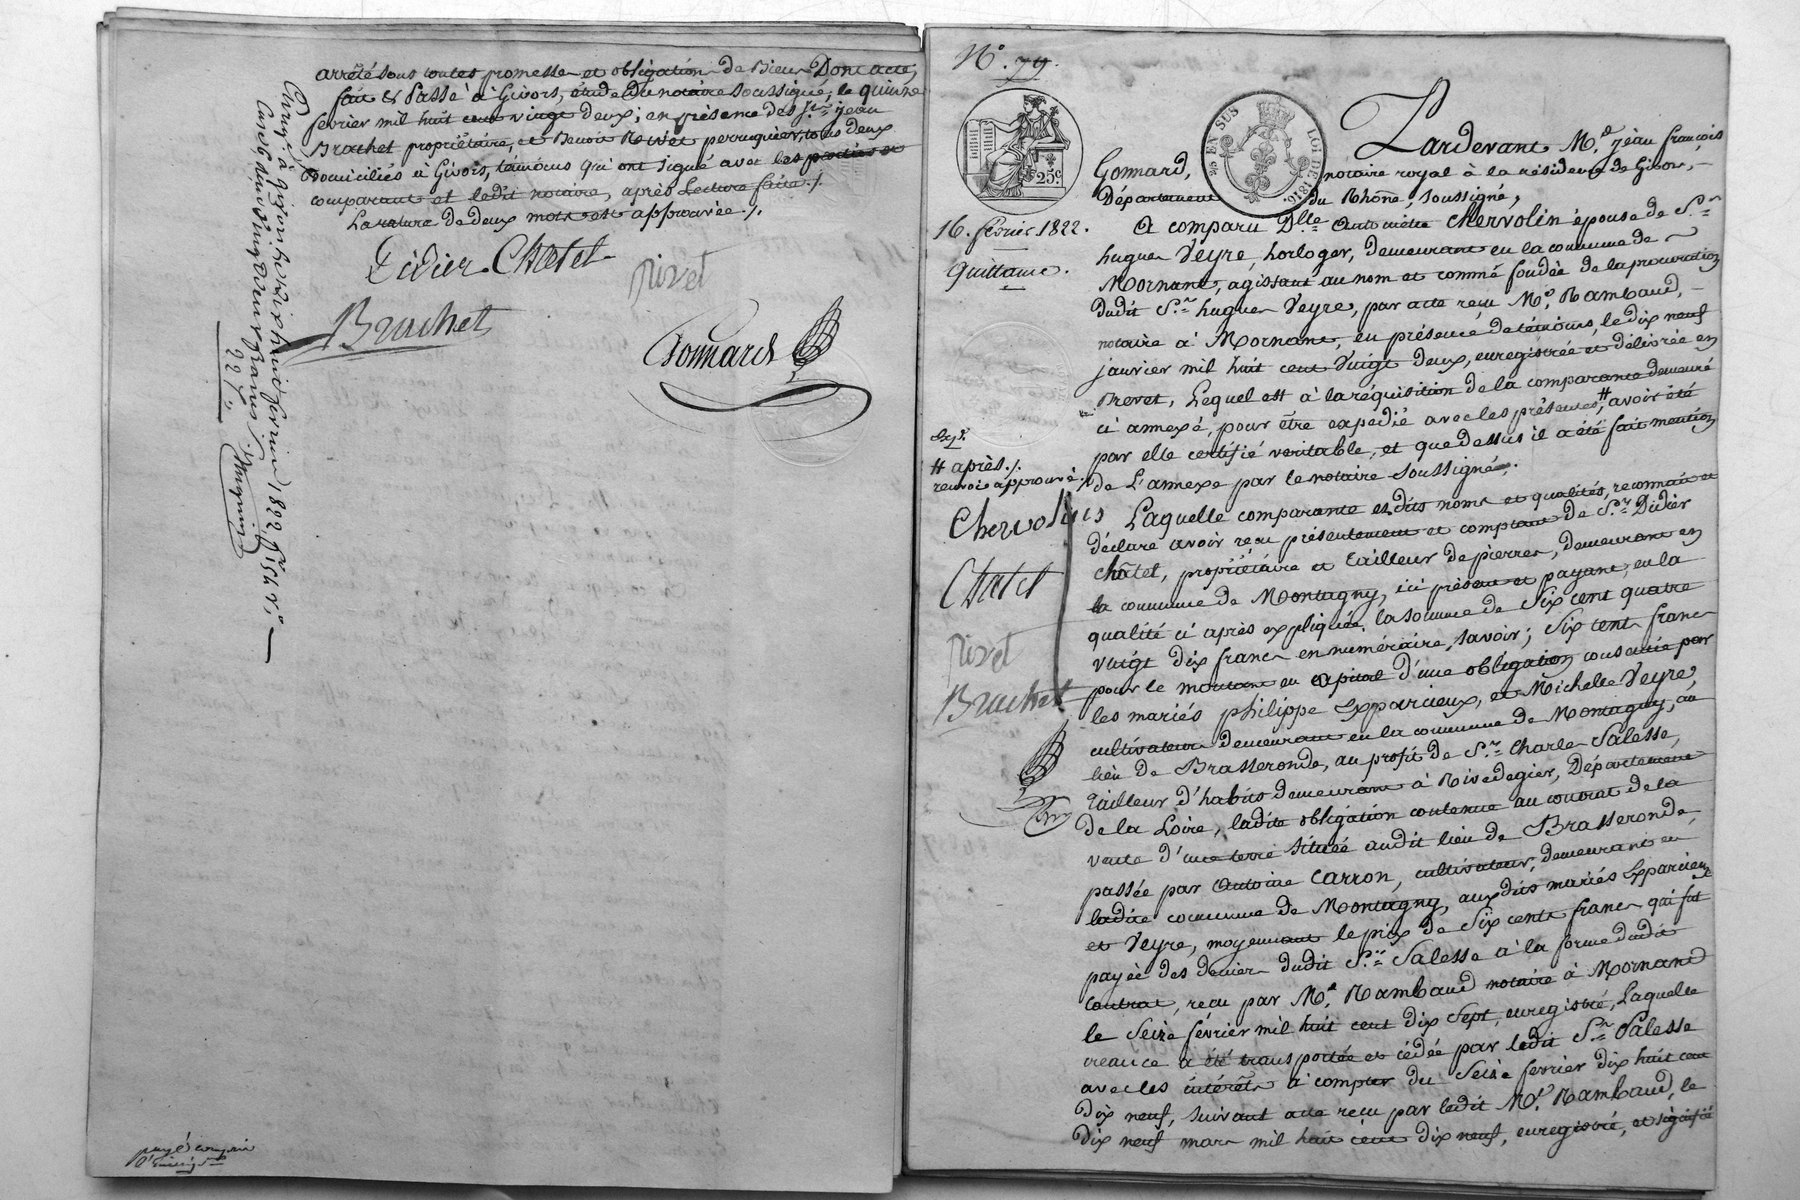 arrêté sous toutes promesse et obligation de Bieu Dont acte,
fait & Passé à Givors, étude du notaire soussigné, le quinze
fevrier mil huit cent vingt deux; en présence des Srs jean
Brachet propriétaire, et Benoit Rivet perruquier, tous deux
Domiciliés à Givors, témoins qui ont signé avec les parties et
comparant et ledit notaire, après Lecture faite ./.
La rature de deux mots est approuvée ./.
Didier Chatel
rivet
Brachet
Gonnard
Enrg. à givors le dix huit fevrier 1822 f° 154 v°,
deux francs
22 c.
payé
N° 79.
25 EN SUS LOI DE 1816.
25c
16. février 1822.
Quittance.
Pardevant Me jean françois
Gonnard, notaire royal à la résidence de Givors,
Département du Rhône, soussigné,
A comparu Dlle Antoinette Chervolin épouse de Sr
hugues Veyre, horloger, demeurant en la commune de
Mornant, agissant au nom et comme fondée de la procuration
dudit Sr hugues Veyre, par acte reçu Me Rambaud,
notaire à Mornant, en présence de témoins, le dix neuf
janvier mil huit cent vingt deux, enregistrée et délivrée en
Brevet, Lequel est à la réquisition de la comparante demeuré
ci annexé, pour être expédié avec les présentes, # avoir été
par elle certifié veritable, et que dessus il a été fait mention
de L'annexe par le notaire soussigné.
# après ./.
renvoi approuvé ./.
Chervolins
Chatel
rivet
Brachet
Laquelle comparante es dits noms et qualités, reconnait et
déclare avoir reçu présentement et comptant de Sr Didier
Châtel, propriétaire et Tailleur de pierres, demeurant en
la commune de Montagny, ici présent et payant, en la
qualité ci après expliquée, la somme de Six cent quatre
vingt dix francs en numéraire, savoir; Six cent francs
pour le montant en capital d'une obligation consentie par
les mariés philippe Exparcieux, et Michelle Veyre,
cultivateurs demeurant en la commune de Montagny, au
lieu de Brasseronde, au profit de Sr Charles Salesse,
Tailleur d'habits demeurant à Rivedegier, Département
de la Loire, ladite obligation contenue au contrat de la
vente d'une terre située audit lieu de Brasseronde,
passée par Antoine Carron, cultivateur, demeurant en
ladite commune de Montagny, auxdits mariés Exparcieux
et Veyre, moyennant le prix de Six cents francs qui fut
payée des deniers dudit Sr Salesse à la forme dudit
Contrat, reçu par Me Rambaud notaire à Mornand
le Seize février mil huit cent dix Sept, enregistré, Laquelle
creance a été transportée et cédée par ledit Sr Salesse
avec les intérêts à compter du Seize fevrier dix huit cent
Dix neuf, suivant acte reçu par ledit Me Rambaud, le
Dix neuf mars mil huit cent dix neuf, enregistré, et signifié